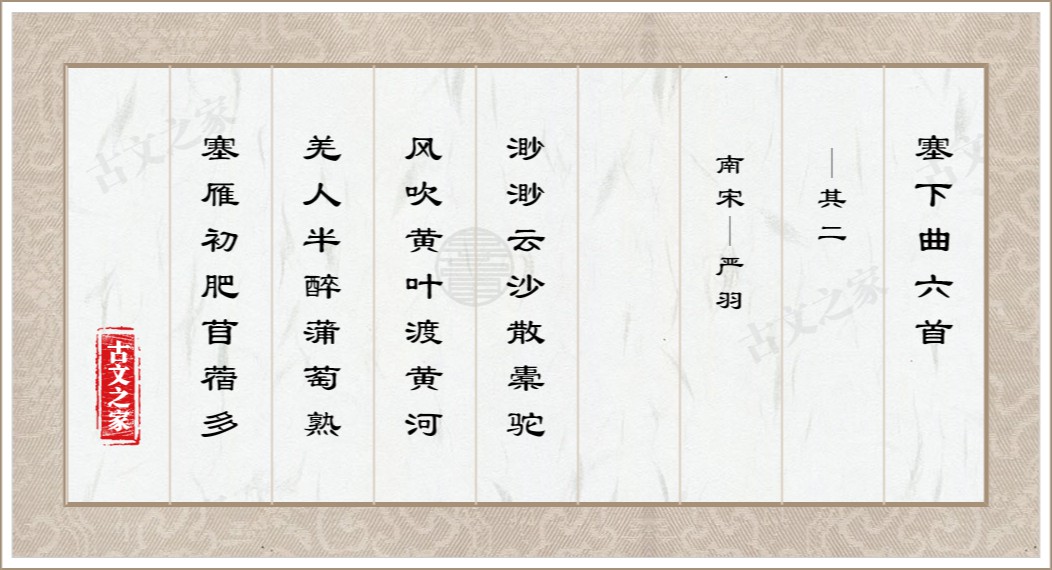 塞下曲六首
—其二
南宋—严羽
渺渺云沙散橐驼
风吹黄叶渡黄河
羌人半醉蒲萄熟
塞雁初肥苜蓿多
古文之家
古文之家
古文之家